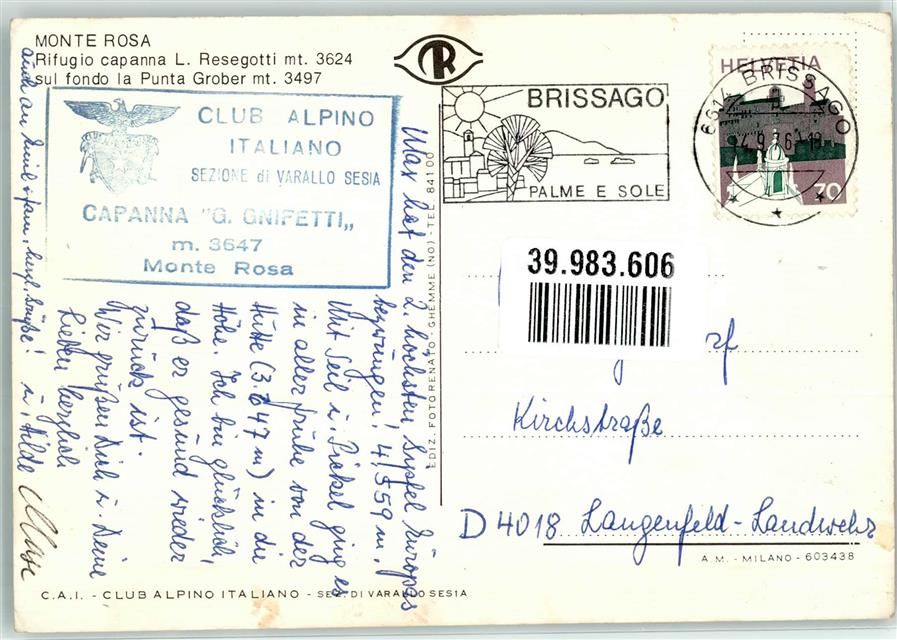 MONTE ROSA
Rifugio capanna L. Resegotti mt. 3624
sul fondo la Punta Grober mt. 3497
CLUB ALPINO
ITALIANO
SEZIONE di VARALLO SESIA
CAPANNA "G. GNIFETTI„
m. 3647
Monte Rosa
R
BRISSAGO
PALME E SOLE
HELVETIA
70
6614 BRISSAGO
39.983.606
Max hat den 2. höchsten Gipfel Europas
bezwungen! 4,559 m.
Mit Seil u. Pickel ging es
in aller frühe von der
Hütte (3.647 m) in die
Höhe. Ich bin glücklich,
daß er gesund wieder
zurück ist.
Wir grüßen Dich u. Deine
Lieben herzlich
u. Hilde Max
auch an herzl. Grüße!
Kirchstraße
D 4018 Langenfeld-Landwehr
EDIZ. FOTO RENATO - GHEMME (NO) - TEL. 84100
A.M. - MILANO - 603438
C.A.I. - CLUB ALPINO ITALIANO - SEZ. DI VARALLO SESIA